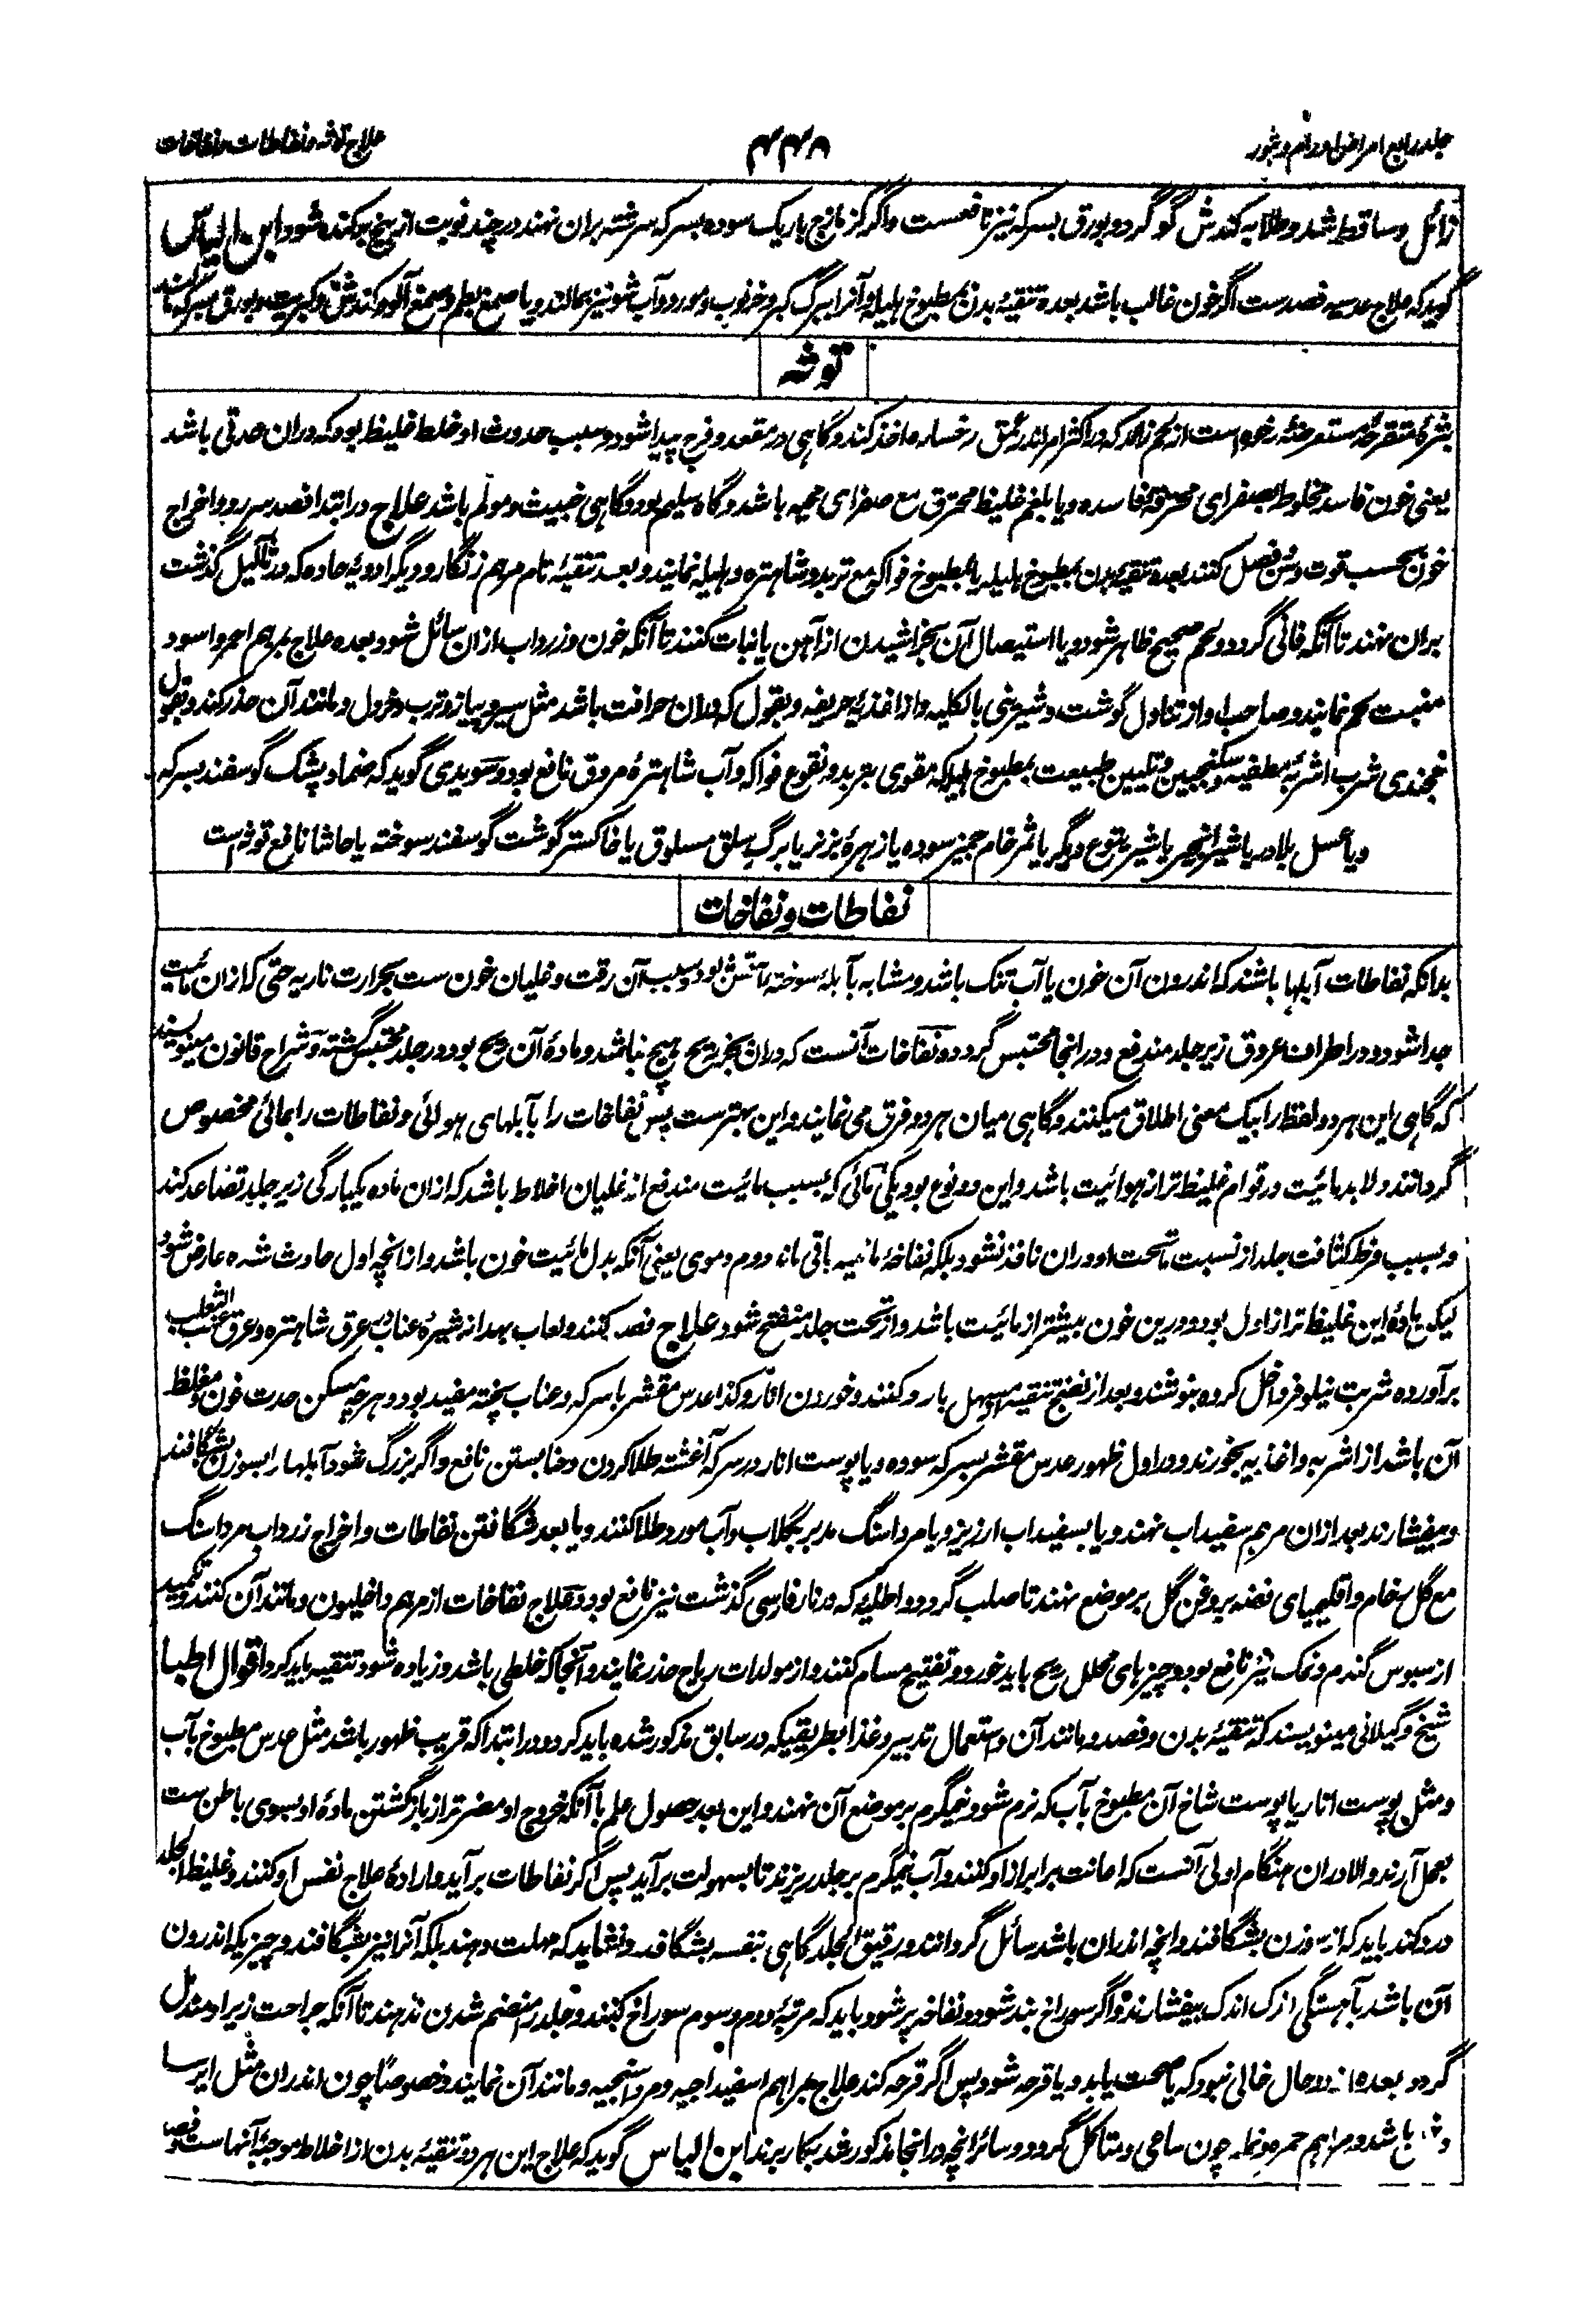 جلد رابع امراض اورام و بثور
۴۴۸
علاج توثه و نفاطات و نفاخات
زائل و ساقط شد و طلا به کندش گوگرد و بورق بسرکه نیز نافعست و اگر گزمازج باریک سوده بسرکه سرشته بران نهند در چند نوبت از بیخ برکنده شود ابن الیاس
گوید که علاج عدسیه فصدست اگر خون غالب باشد بعده تنقیه بدن بمطبوخ هلیله و آنرا ببرگ کبر و خرنوب و مورد و آب شونیز بمالند و یا صمغ بطم و صمغ آلو و کندش و کبریت و بورق بسرکه
توثه
بثرۀ متقرحۀ مستعرضۀ رخوه است از لحم زائد که در اکثر امر اندر عمق رخساره ماخذ کند و گاهی در مقعد و فرج پیدا شود و سبب حدوث او خلط غلیظ بود که دران حدتی باشد
یعنی خون فاسد مخلوط بصفرای محترقه فاسده و یا بلغم غلیظ محترق مع صفرای محیه باشد و گاه سلیم بود و گاهی خبیث و مولم باشد علاج در ابتدا فصد سررو و اخراج
خون بحسب قوت و سن و فصل کنند بعده تنقیه بدن بمطبوخ هلیله یا بمطبوخ فواکه مع تربد و شاهتره و هلیله نمایند و بعد تنقیۀ تام مرهم زنگار و دیگر ادویۀ حاده که در ثآلیل گذشت
بران نهند تا آنکه فانی گردد و لحم صحیح ظاهر شود و یا استیصال آن بخراشیدن از آهن یا نبات کنند تا آنکه خون و زرداب ازان سائل شود بعده علاج بمرهم احمر و اسود
منبت لحم نمایند و صاحب او از تناول گوشت و شیرینی بالکلیه و از اغذیۀ حریفه و بقول که دران حرافت باشد مثل سیر و پیاز و ترب و خردل و مانند آن حذر کند و بقول
خجندی شرب اشربۀ مطفیه و سکنجبین و تلیین طبیعت بمطبوخ هلیله که مقوی بتربد و نقوع فواکه و آب شاهترۀ مروق نافع بود و سویدی گوید که ضماد پشک گوسفند بسرکه
و یا عسل بلادر یا شیر انجیر یا شیر یتوع دیگر یا ثمر خام جمیز سوده یا زهرۀ بز نر یا برگ سلق مسلوق یا خاکستر گوشت گوسفند سوخته یا حاشا نافع توثه است
نفاطات و نفاخات
بدانکه نفاطات آبلها باشند که اندرون آن خون یا آب تنک باشد و مشابه بآبلۀ سوخته بآتش بود و سبب آن رقت و غلیان خون ست بحرارت ناریه حتی که ازان مائیت
جدا شود و در اطراف عروق زیر جلد مندفع و در انجا محتبس گردد و نفاخات آنست که دران بجز ریح هیچ نباشد و مادۀ آن ریح بود در جلد محتبس گشته و شراح قانون مینویسند
که گاهی این هر دو لفظ را بیک معنی اطلاق میکنند و گاهی میان هر دو فرق می نمایند و این بهترست پس نفاخات را بآبلهای هوائی و نفاطات را بمائی مخصوص
گردانند و لا بد مائیت در قوام غلیظ تر از هوائیت باشد و این دو نوع بود یکی مائی که بسبب مائیت مندفع از غلیان اخلاط باشد که ازان ماده یکبارگی زیر جلد تصاعد کند
و بسبب فرط کثافت جلد از نسبت ماتحت او دران نافذ نشود بلکه نفاخۀ مائیه باقی ماند دوم دموی یعنی آنکه بدل مائیت خون باشد و از انچه اول حادث شده عارض شود
لیکن مادۀ این غلیظ تر از اول بود و درین خون بیشتر از مائیت باشد و از تحت جلد منفتح شود علاج فصد کنند و لعاب بهدانه شیرۀ عناب در عرق شاهتره و عرق عنب الثعلب
برآورده شربت نیلوفر داخل کرده بنوشند و بعد از نضج تنقیه بمسهل بارد کنند و خوردن انار و کذا عدس مقشر با سرکه و عناب پخته مفید بود و هرچه مسکن حدت خون و مغلظ
آن باشد از اشربه و اغذیه بخورند و در اول ظهور عدس مقشر بسرکه سوده و یا پوست انار در سرکه آغشته طلا کردن و حنا بستن نافع و اگر بزرگ شود آبلها را بسوزن بشگافند
و بیفشارند بعد ازان مرهم سفیداب نهند و یا بسفیداب ارزیز و یا مرداسنگ مدبر بگلاب و آب مورد طلا کنند و یا بعد شگافتن نفاطات و اخراج زرداب مرداسنگ
مع گل سرخ خام و اقلیمیای فضه بروغن گل بر موضع نهند تا صلب گردد و اطلیه که در نار فارسی گذشت نیز نافع بود و علاج نفاخات از مرهم داخلیون و مانند آن کنند و تکمید
از سبوس گندم و نمک نیز نافع بود و چیزهای محلل ریح باید خورد و تفتیح مسام کنند و از مولدات ریاح حذر نمایند و آنجا که خلطی باشد و زیاده شود تنقیه باید کرد اقوال اطبا
شیخ و گیلانی مینویسند که تنقیۀ بدن و فصد و مانند آن و استعمال تدبیر و غذا بطریقیکه در سابق مذکور شده باید کرد و در ابتدا که قریب ظهور باشد مثل عدس مطبوخ بآب
و مثل پوست انار یا پوست شاخ آن مطبوخ بآب که نرم شود و نیمگرم بر موضع آن نهند و این بعد حصول علم بآنکه خروج او مضر تر از بازگشتن مادۀ او بسوی باطن ست
بعمل آرند و الا دران هنگام اولی آنست که اعانت بر ابراز او کنند و آب نیمگرم بر جلد ریزند تا بسهولت برآید پس اگر نفاطات برآید و ارادۀ علاج نفس او کنند و غلیظ الجلد
درد کند باید که از سوزن بشگافند و انچه اندران باشد سائل گردانند و رقیق الجلد گاهی بنفسه بشگافد و نشاید که مهلت دهند بلکه آنرا نیز بشگافند و چیزیکه اندرون
آن باشد بآهستگی اندک اندک بیفشارند و اگر سوراخ بند شود و نفاخه پر شود باید که مرتبۀ دوم و سوم سوراخ کنند و جلد را منضم شدن ندهند تا آنکه جراحت زیر او مندمل
گردد بعده از دو حال خالی نبود که یا صحت یابد و یا قرحه شود پس اگر قرحه کند علاج بمراهم اسفیداجیه و مرداسنجیه و مانند آن نمایند و خصوصا چون اندران مثل ایرسا
باشد و مراهم حمره و نمله چون ساعی و متاکل گردد و سائر انچه در انجا مذکور شد بکار برند ابن الیاس گوید که علاج این هر دو تنقیۀ بدن از اخلاط موجبۀ آنهاست و فصد